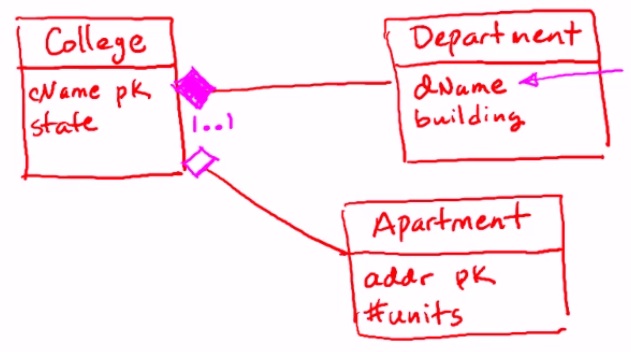 College
cName pk
state
1..1
Department
dName
building
Apartment
addr pk
#units